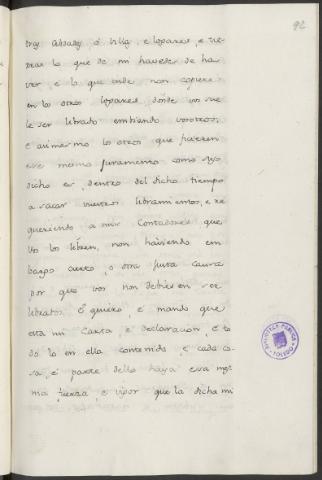 92
tras Cibdades, o Villas, e logares, e ve
reas lo que de mi havedes de ha
ver, e lo que ende non copiere
en los otros logares donde vos sue
le ser librado embiando vosotros,
e asimesmo los otros que ficieren
ese mesmo Juramento como suso
dicho es, dentro del dicho tiempo
a sacar vuestros libramientos, e re
queriendo a mis Contadores que
vos los libren, non haviendo em
bargo cierto, o otra justa causa
por que vos non debiesen ser
librados. E quiero, e mando que
esta mi Carta, e declaracion, e to
do lo en ella contenido, e cada co
sa, e parte dello haya esa mes
ma fuerza, e vigor que la dicha mi
BIBLIOTECA PUBLICA
TOLEDO